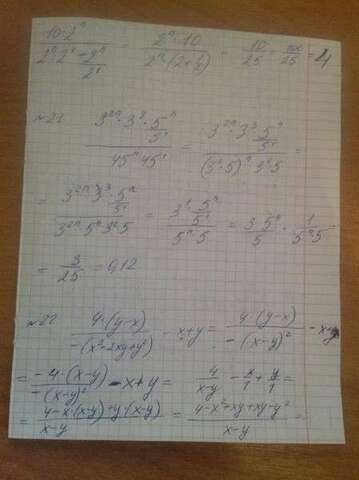 (10·2^n)/(2^n·2^1+2^n/2^1) = (2^n·10)/(2^n(2+1/2)) = 10/25 = 100/25 = 4
№21 (3^(2n)·3^3·5^n/5^1)/(45^n 45^1) = (3^(2n)·3^3·5^n/5^1)/((3^2·5)^n 3^2·5) =
= (3^(2n)·3^3·5^n/5^1)/(3^(2n)·5^n 3^2·5) = (3^1·5^n/5^1)/(5^n·5) = (3·5^n)/5 · 1/(5^n·5) =
= 3/25 = 0,12
№22 (4·(y-x))/(-(x²-2xy+y²)) - x+y = (4·(y-x))/(-(x-y)²) - x+y
= (-4·(x-y))/(-(x-y)²) - x+y = 4/(x-y) - x/1 + y/1 =
= (4-x·(x-y)+y·(x-y))/(x-y) = (4-x²+xy+xy-y²)/(x-y) =